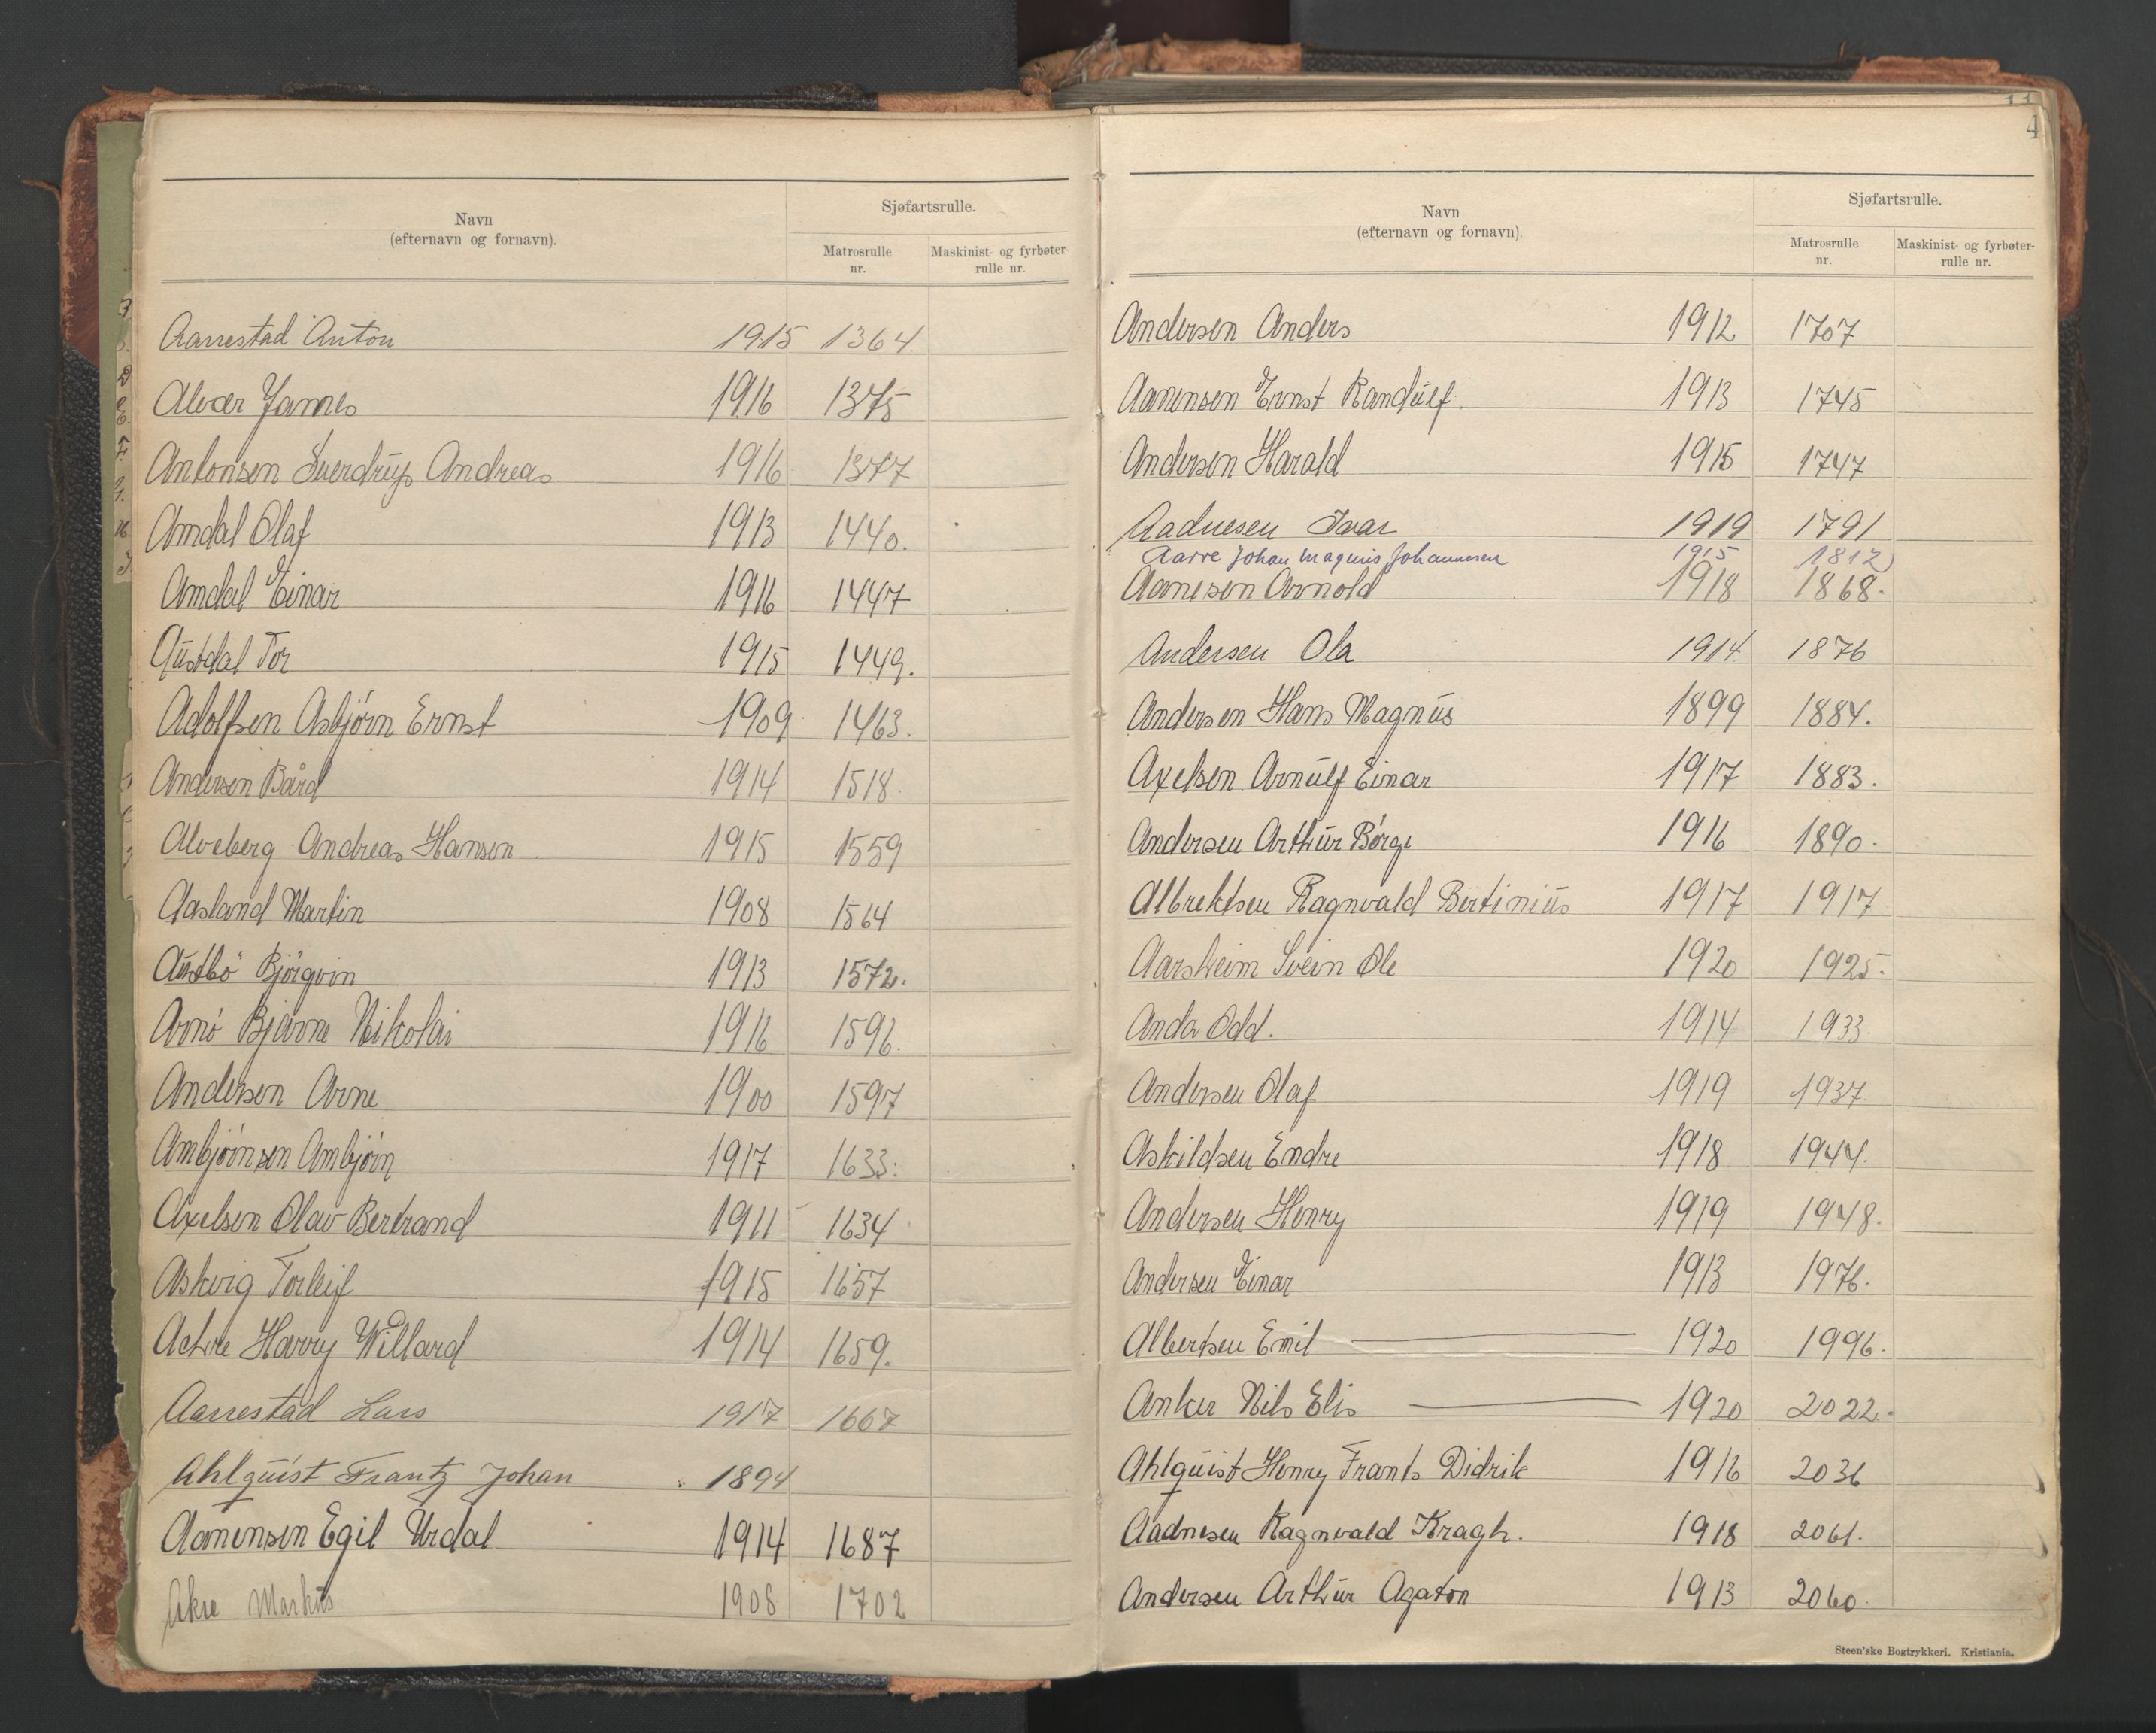 Navn
(efternavn og fornavn).
Sjøfartsrulle.
Matrosrulle nr.
Maskinist- og fyrbøter-rulle nr.
Aarrestad Anton 1915 1364.
Alvær James 1916 1375
Antonsen Sverdrup Andreas 1916 1377
Amdal Olaf 1913 1440.
Amdal Einar 1916 1447
Austdal Tor 1915 1449.
Adolfsen Asbjörn Ernst 1909 1463.
Andersen Bård 1914 1518.
Alveberg Andreas Hansen 1915 1559
Aasland Martin 1908 1564
Austbö Björgvin 1913 1572.
Arnö Bjarne Nikolai 1916 1596.
Andersen Arne 1900 1597
Ambjörnsen Ambjörn 1917 1633.
Axelsen Olav Bertrand 1911 1634
Askvig Torleif 1915 1657
Actire Harry Willard 1914 1659.
Aarrestad Lars 1917 1667
Ahlquist Frantz Johan 1894
Aanensen Egil Urdal 1914 1687
Akre Markus 1908 1702
4
Navn
(efternavn og fornavn).
Sjøfartsrulle.
Matrosrulle nr.
Maskinist- og fyrbøter-rulle nr.
Andersen Anders 1912 1707
Aanensen Ernst Randulf. 1913 1745
Andersen Harald 1915 1747
Aadnesen Ivar 1919 1791
Aarre Johan Magnus Johannesen 1915 1812
Aanesen Arnold 1918 1868.
Andersen Ola 1914 1876
Andersen Hans Magnus 1899 1884.
Axelsen Arnulf Einar 1917 1883.
Andersen Arthur Börge 1916 1890.
Albrektsen Ragnvald Bertinius 1917 1917
Aarsheim Svein Ole 1920 1925.
Anda Odd. 1914 1933.
Andersen Olaf 1919 1937.
Askildsen Endre 1918 1944.
Andersen Henry 1919 1948.
Andersen Einar 1913 1976.
Albertsen Emil 1920 1996.
Anker Nils Elis 1920 2022.
Ahlquist Henry Frants Didrik 1916 2036
Aadnesen Ragnvald Kragh. 1918 2061.
Andersen Arthur Agaton 1913 2060.
Steen'ske Bogtrykkeri. Kristiania.